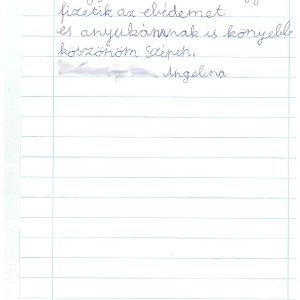 fizetik az ebédemet
és anyukámnak is könyebb
köszönöm Szépen.
Angelina